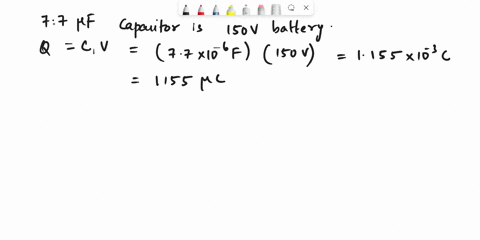 7.7 μF Capacitor is 150V battery.
Q = C₁V = (7.7 × 10⁻⁶ F) (150V) = 1.155 × 10⁻³ C
= 1155 μC